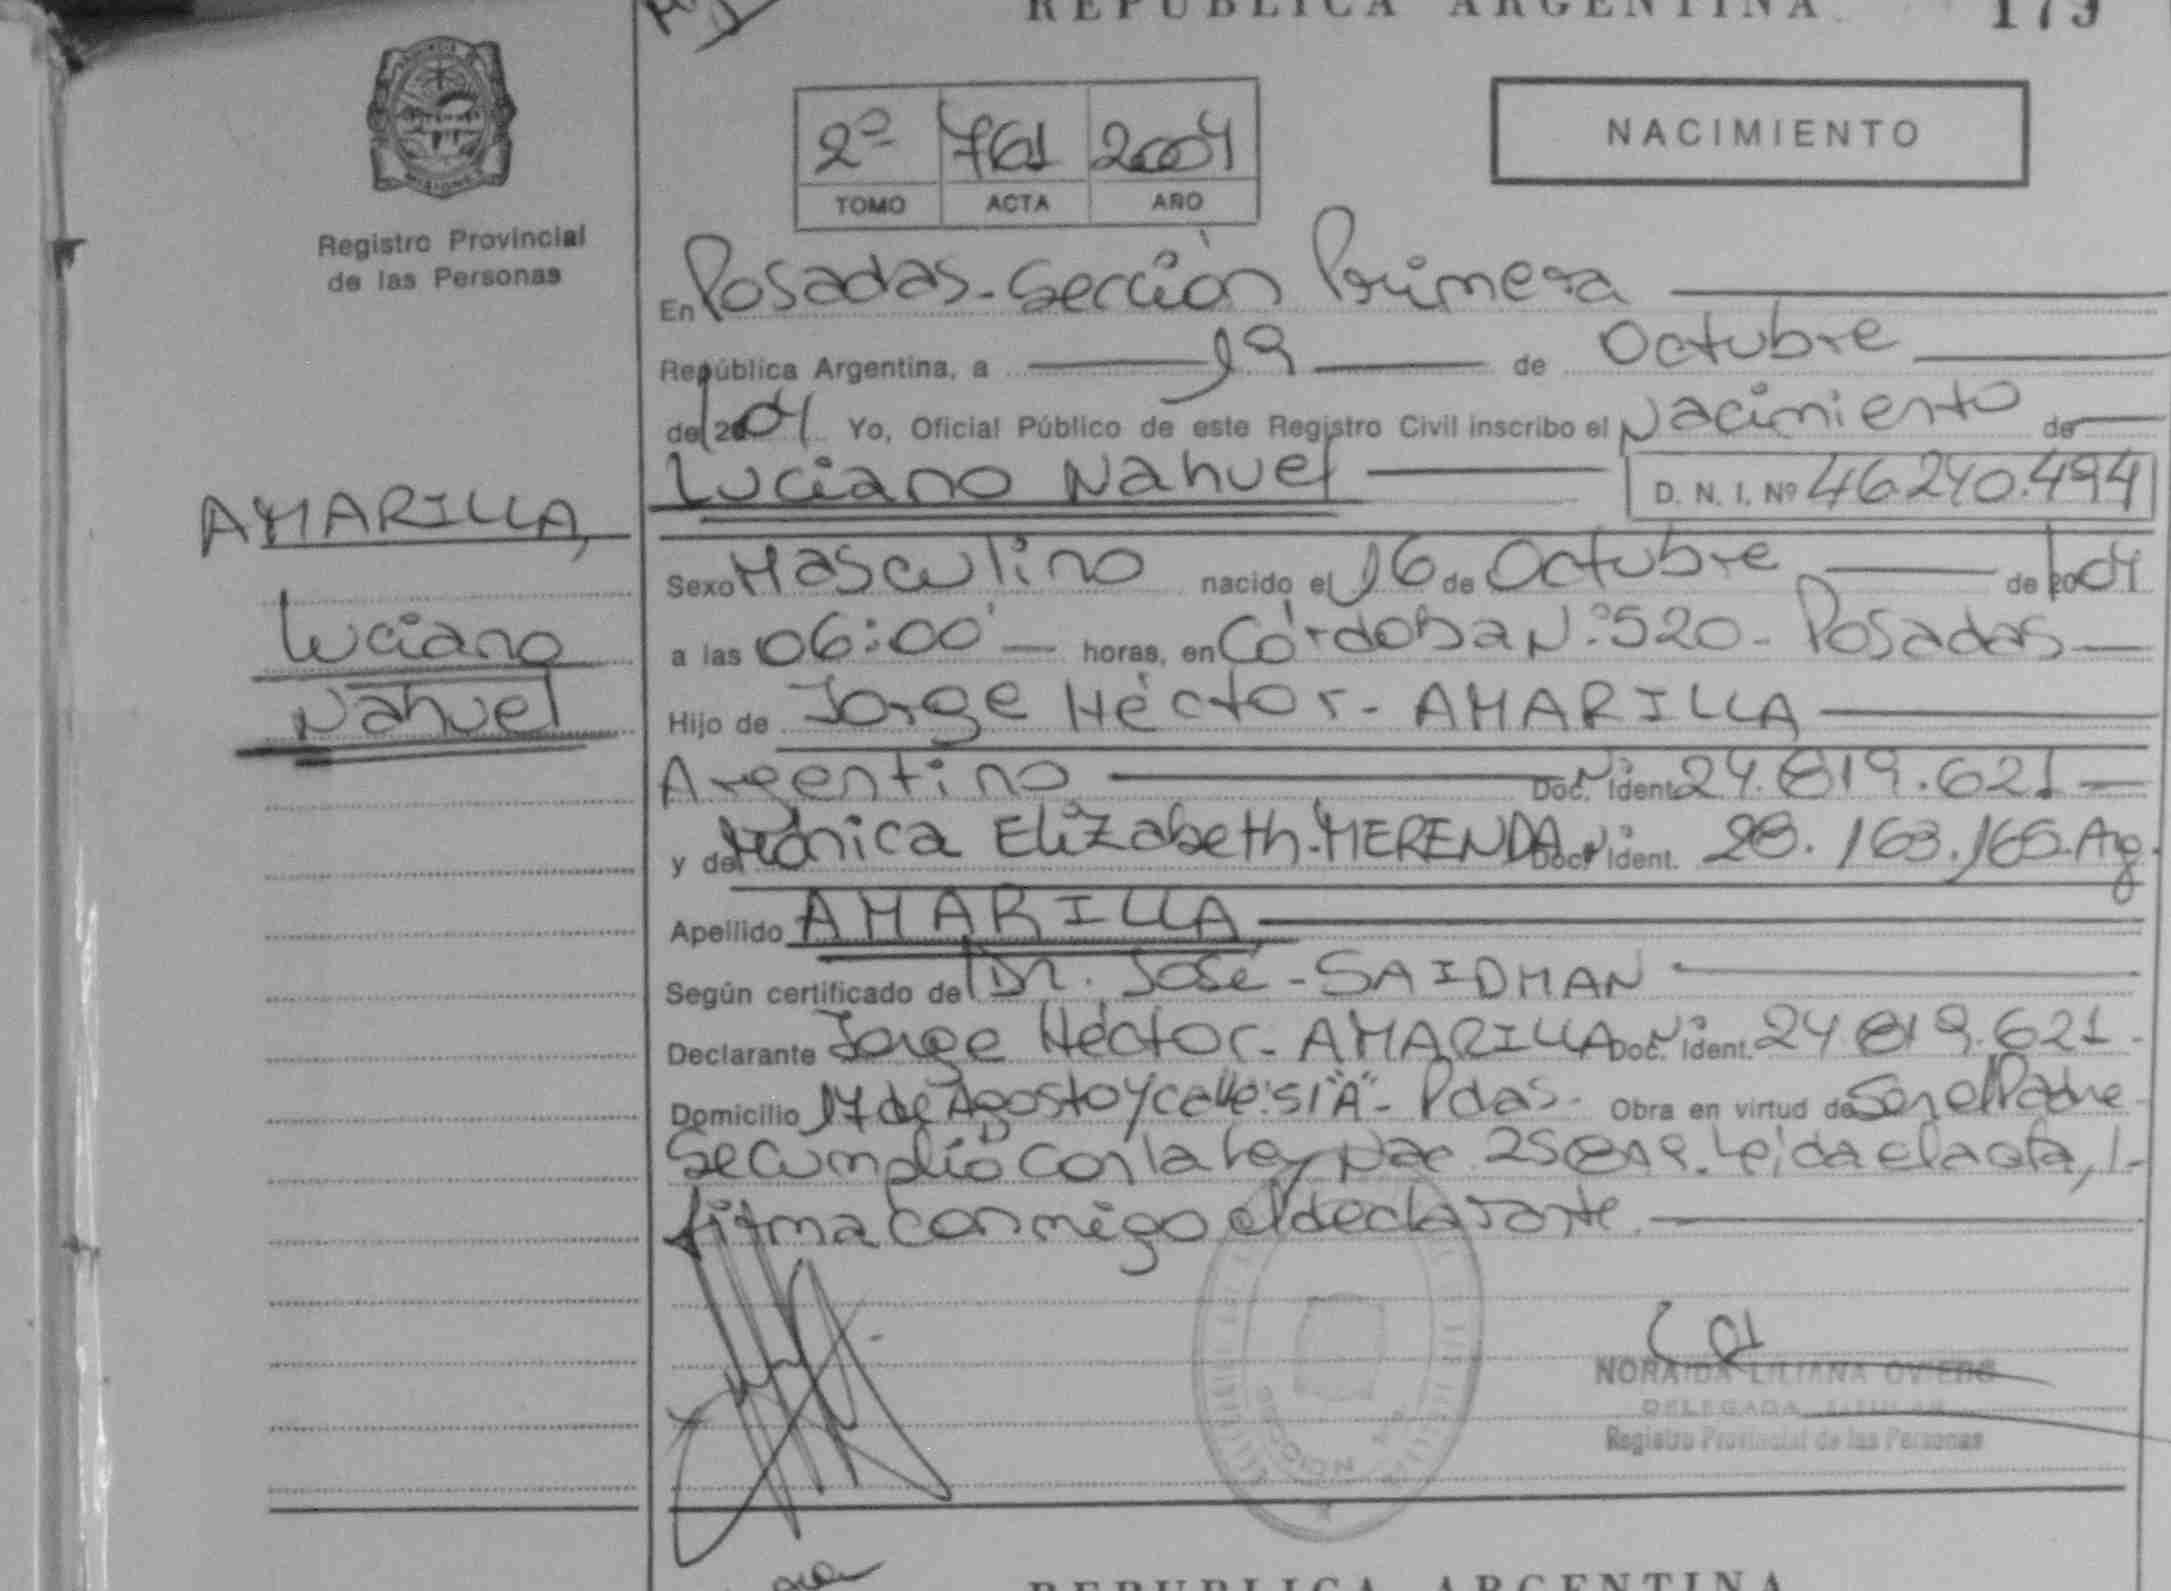 REPUBLICA ARGENTINA 179
MISIONES
Registro Provincial
de las Personas
2º 761 2004
TOMO ACTA AÑO
NACIMIENTO
En Posadas - Sección Primera
República Argentina, a 19 de Octubre
de 2004 Yo, Oficial Público de este Registro Civil inscribo el Nacimiento de
Luciano Nahuel D. N. I. Nº 46.240.494
AMARILLA,
Luciano
Nahuel
Sexo Masculino nacido el 16 de Octubre de 2004
a las 06:00' horas, en Córdoba N.º 520 - Posadas
Hijo de Jorge Héctor - AMARILLA
Argentino Doc. Nº Ident. 24.819.621
y de Mónica Elizabeth - MERENDA Doc. Nº Ident. 28.163.165. Arg.
Apellido AMARILLA
Según certificado de Dr. José - SAIDMAN
Declarante Jorge Héctor - AMARILLA Doc. Nº Ident. 24 819.621 -
Domicilio 17 de Agosto y calle: s/ "A" - Pdas - Obra en virtud de Ser el Padre -
Se Cumplió con la Ley Nac. 25819. Leída el acta, l-
firma conmigo el declarante.
NORAIDA LILIANA OVIEDO
DELEGADA TITULAR
Registro Provincial de las Personas
REPUBLICA ARGENTINA